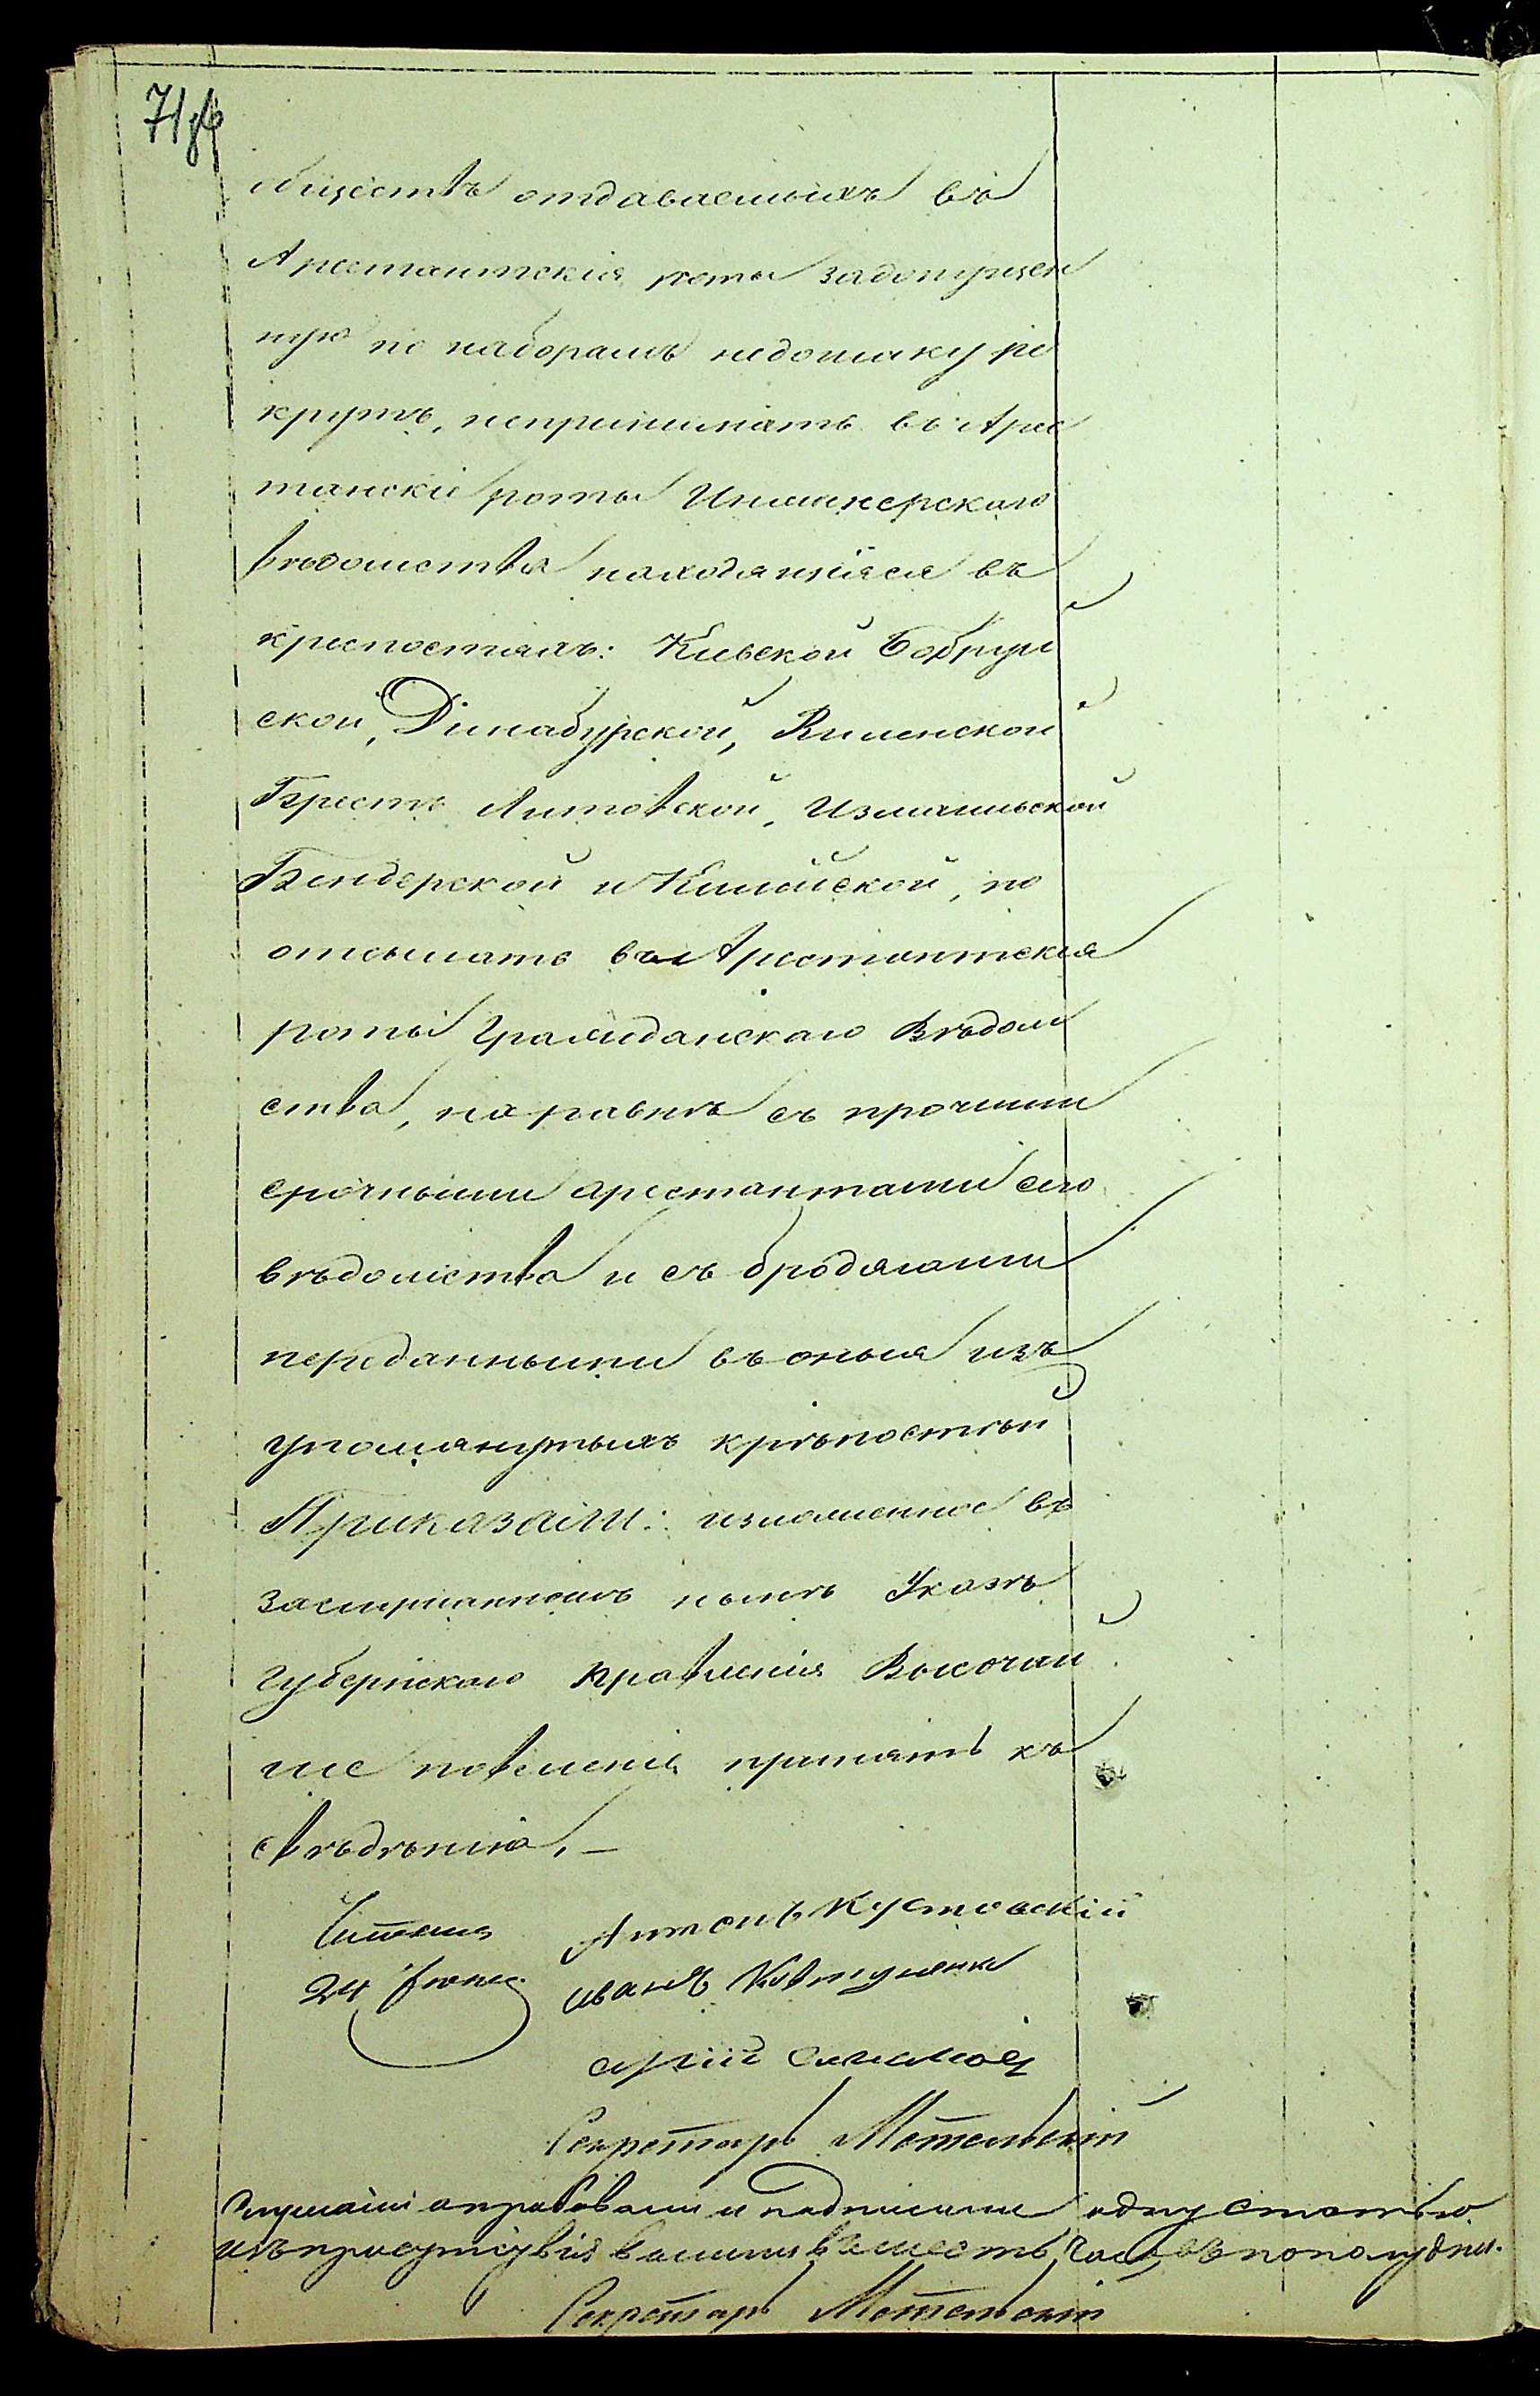 71об
обществъ отдаваемыхъ въ
Арестантскія роты за допущен
ную по наборамъ недоимку ре
крутъ, непринимать въ Арес
танскіе роты Инженерскаго
вѣдомства находящіяся въ
крепостяхъ: Кіевской Бобруй
ской, Динабурской, Виленской
Брестъ Литовской, Измаильской
Бендерской и Килійской, но
отсылать въ Арестантскія
роты Гражданскаго Вѣдом
ства, на равнѣ съ прочими
срочными арестантами сего
вѣдомства и съ бродягами
переданными въ оныя изъ
упомянутыхъ крѣпостей
Приказали: изложенное въ
заслушанномъ нынѣ Указѣ
Губернскаго Правленія Высочай
шее повеленія принять къ
свѣдѣнію. —
Читана
24 Іюня
Антонъ Кустовскій
Иванъ
Секретарь
Слушали апробовали и подписали одну статью
изъ присутствія вышли въ шесть часовъ пополудни.
Секретарь